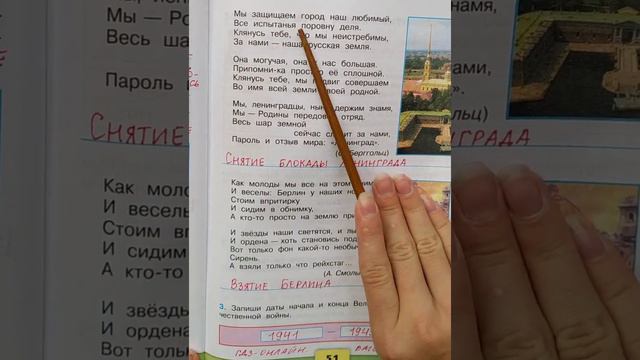 Мы защищаем город наш любимый,
Все испытанья поровну деля.
Клянусь тебе, что мы неистребимы,
За нами — наша русская земля.
Она могучая, она у нас большая.
Припомни-ка простор её сплошной.
Клянусь тебе, мы подвиг совершаем
Во имя всей земли своей родной.
Мы, ленинградцы, ныне держим знамя,
Мы — Родины передовой отряд.
Весь шар земной
сейчас следит за нами,
Пароль и отзыв мира: «Ленинград».
(О. Берггольц)
СНЯТИЕ БЛОКАДЫ ЛЕНИНГРАДА
Как молоды мы все на этом
И веселы: Берлин у наших ног
Стоим впритирку
И сидим в обнимку,
А кто-то просто на землю
И звёзды наши светятся, и
И ордена — хоть становись под
Вот только фон какой-то необыч
Сирень.
А взяли только что рейхстаг...
(А. Смоль
ВЗЯТИЕ БЕРЛИНА
3. Запиши даты начала и конца Вел
чественной войны.
1941 — 194
ГДЗ-ОНЛАЙН
51